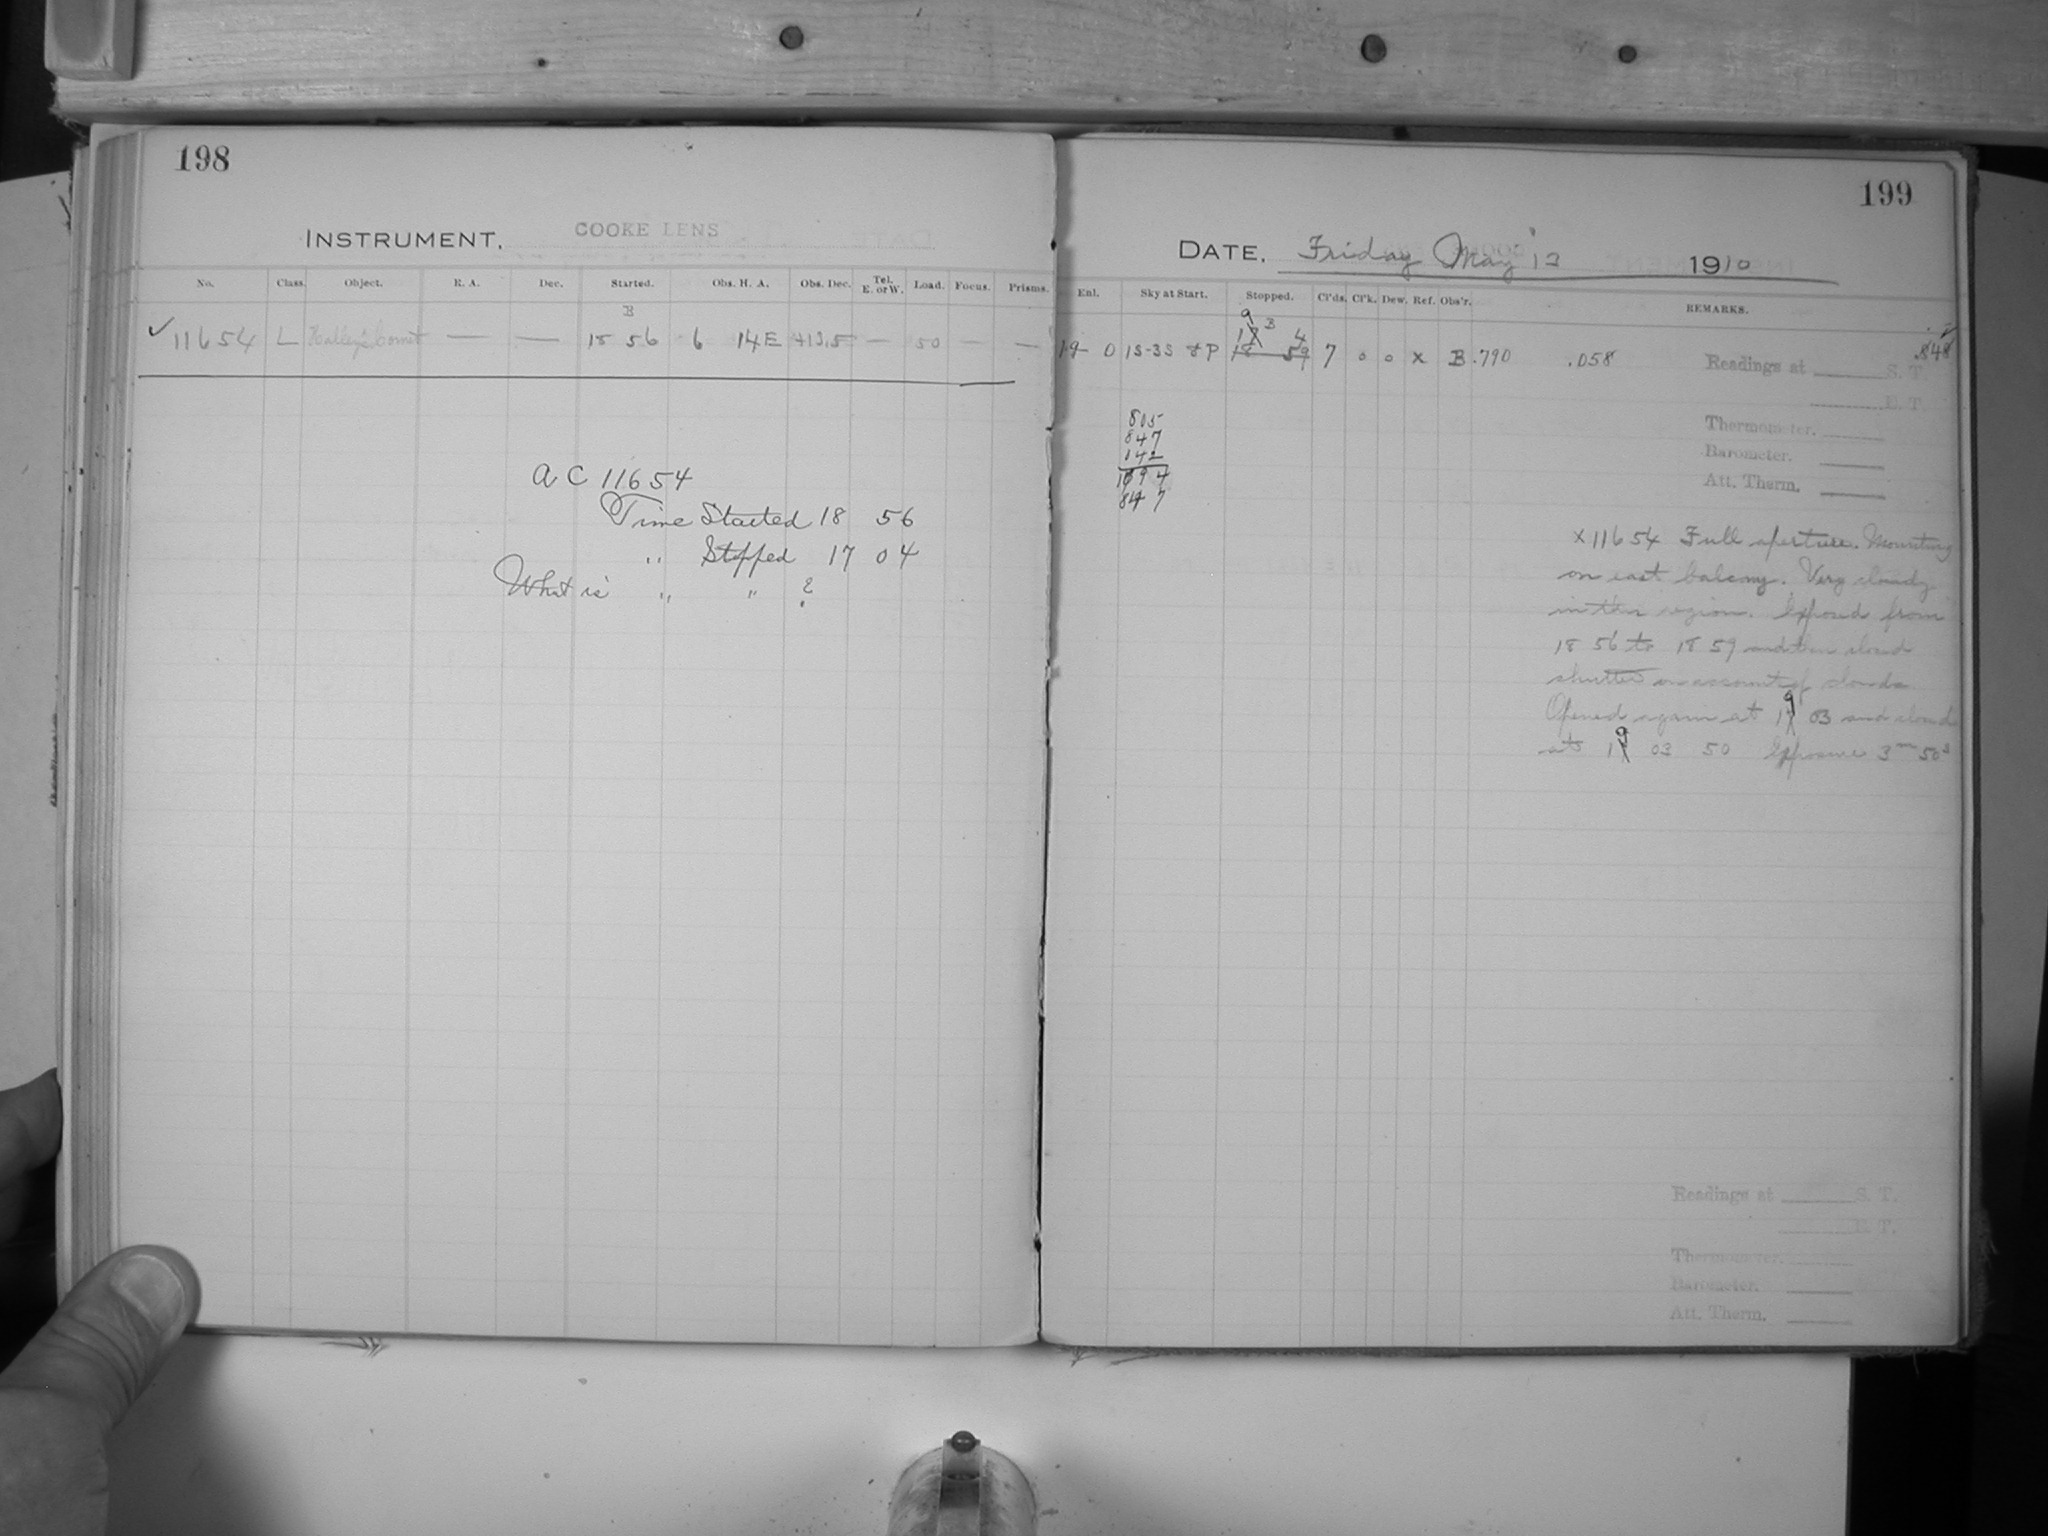 198
INSTRUMENT, COOKE LENS
No. Class. Object. R. A. Dec. Started. Obs. H. A. Obs. Dec. Tel. E. or W. Load. Focus. Prisms.
B
✓ 11654 L Halley's Comet — — 18 56 6 14E +13.5 — 50 — —
A C 11654
Time Started 18 56
" Stopped 17 04
What is " " ?
199
DATE, Friday May 13 1910
Enl. Sky at Start. Stopped. Cl'ds. Cl'k. Dew. Ref. Obs'r. REMARKS.
9 B
19 0 1S-3S &P 17 4 7 0 0 x B .790 .058 .848
18 59
Readings at S. T.
E. T.
Thermometer.
Barometer.
Att. Therm.
805
847
842
1694
847
x 11654 Full aperture. Mounting
on east balcony. Very cloudy
in this region. Exposed from
18 56 to 18 59 and then closed
shutter on account of clouds.
Opened again at 19 03 and closed
at 19 03 50 Exposure 3m 50s
Readings at S. T.
E. T.
Thermometer.
Barometer.
Att. Therm.